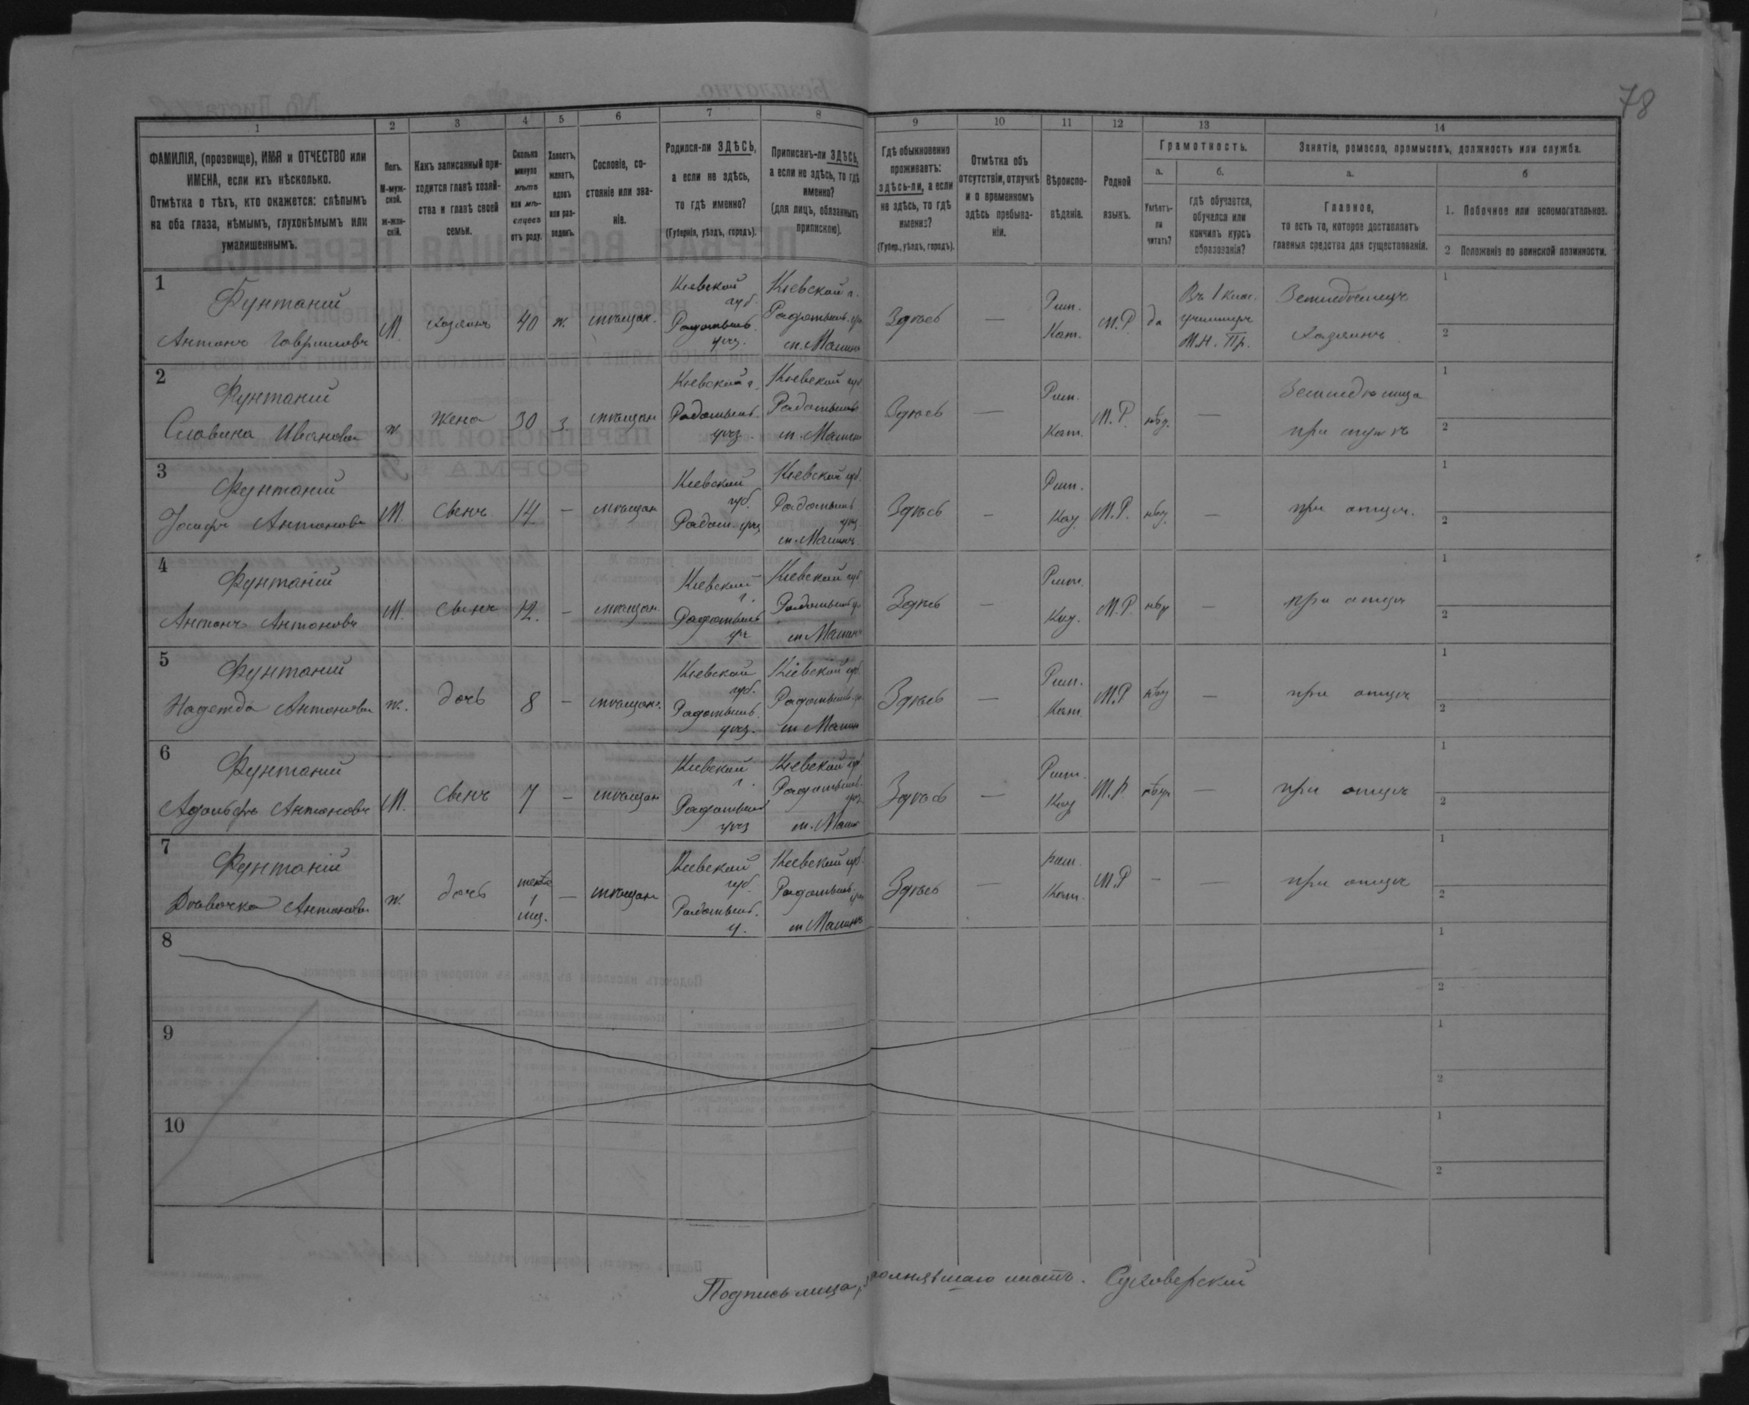 78
1 2 3 4 5 6 7 8 9 10 11 12 13 14
ФАМИЛІЯ, (прозвище), ИМЯ и ОТЧЕСТВО или
ИМЕНА, если ихъ нѣсколько.
Отмѣтка о тѣхъ, кто окажется: слѣпымъ
на оба глаза, нѣмымъ, глухонѣмымъ или
умалишеннымъ.
Полъ.
М-муж-
ской.
Ж-жен-
скій.
Какъ записанный при-
ходится главѣ хозяй-
ства и главѣ своей
семьи.
Сколько
минуло
лѣтъ
или мѣ-
сяцевъ
отъ роду.
Холостъ,
женатъ,
вдовъ
или раз-
веденъ.
Сословіе, со-
стояніе или зва-
ніе.
Родился-ли ЗДѢСЬ,
а если не здѣсь,
то гдѣ именно?
(Губернія, уѣздъ, городъ).
Приписанъ-ли ЗДѢСЬ,
а если не здѣсь, то гдѣ
именно?
(для лицъ, обязанныхъ
припискою).
Гдѣ обыкновенно
проживаетъ:
здѣсь-ли, а если
не здѣсь, то гдѣ
именно?
(Губер., уѣздъ, городъ).
Отмѣтка объ
отсутствіи, отлучкѣ
и о временномъ
здѣсь пребыва-
ніи.
Вѣроиспо-
вѣданіе.
Родной
языкъ.
Грамотность.
а.
Умѣетъ-
ли
читать?
б.
гдѣ обучается,
обучался или
кончилъ курсъ
образованія?
Занятіе, ремесло, промыселъ, должность или служба.
а.
Главное,
то есть то, которое доставляетъ
главныя средства для существованія.
б
1. Побочное или вспомогательное.
2 Положеніе по воинской повинности.
1
Фунтаній
Антонъ Гавриловъ
М.
хозяинъ
40
ж.
мѣщан.
Кіевской
губ.
Радомысл.
уѣз.
Кіевской г.
Радомысл. уѣз
м. Малинъ
Здѣсь
—
Рим.
Кат.
М.Р
да
Въ 1 клас.
училищѣ
М.Н. Пр.
Земледѣлецъ
хозяинъ
1
2
2
Фунтаній
Славина Иванова
ж.
жена
30
з.
мѣщан
Кіевской г.
Радомысл.
уѣз.
Кіевской губ
Радомысл
м. Малин
Здѣсь
—
Рим.
Кат.
М.Р.
нѣт.
—
Земледѣлица
при мужѣ
1
2
3
Фунтаній
Іосифъ Антоновъ
М
сынъ
14
—
мѣщан
Кіевской
губ.
Радом. уѣз
Кіевской губ.
Радомысл
уѣз
м. Малинъ
Здѣсь
—
Рим.
Кат.
М.Р.
нѣт
—
при отцѣ.
1
2
4
Фунтаній
Антонъ Антоновъ
М.
сынъ
12.
—
мѣщан
Кіевской
г.
Радомысл
уѣз
Кіевской губ
Радомысл у.
м. Малинъ
Здѣсь
—
Рим.
Кат.
М.Р.
нѣт
—
при отцѣ
1
2
5
Фунтаній
Надежда Антонова
ж.
дочь
8
—
мѣщан.
Кіевской
губ.
Радомысл.
уѣз.
Кіевской губ.
Радомысл у.
м Малин
Здѣсь
—
Рим.
Кат.
М.Р
нѣт
—
при отцѣ
1
2
6
Фунтаній
Адольфъ Антоновъ
М.
сынъ
7
—
мѣщан
Кіевской
г.
Радомысл
уѣз
Кіевской губ
Радомысл.
уѣз.
м. Малин
Здѣсь
—
Рим.
Кат
М.Р
нѣт
—
при отцѣ
1
2
7
Фунтаній
Антонова
ж.
дочь
1
мѣс.
—
мѣщан
Кіевской
губ.
Радомысл.
у.
Кіевской губ.
Радомысл. уѣз
м Малинъ
Здѣсь
—
Рим.
Кат.
М.Р
—
—
при отцѣ
1
2
8
1
2
9
1
2
10
1
2
Подпись лица, заполнявшаго листъ. Суховерский